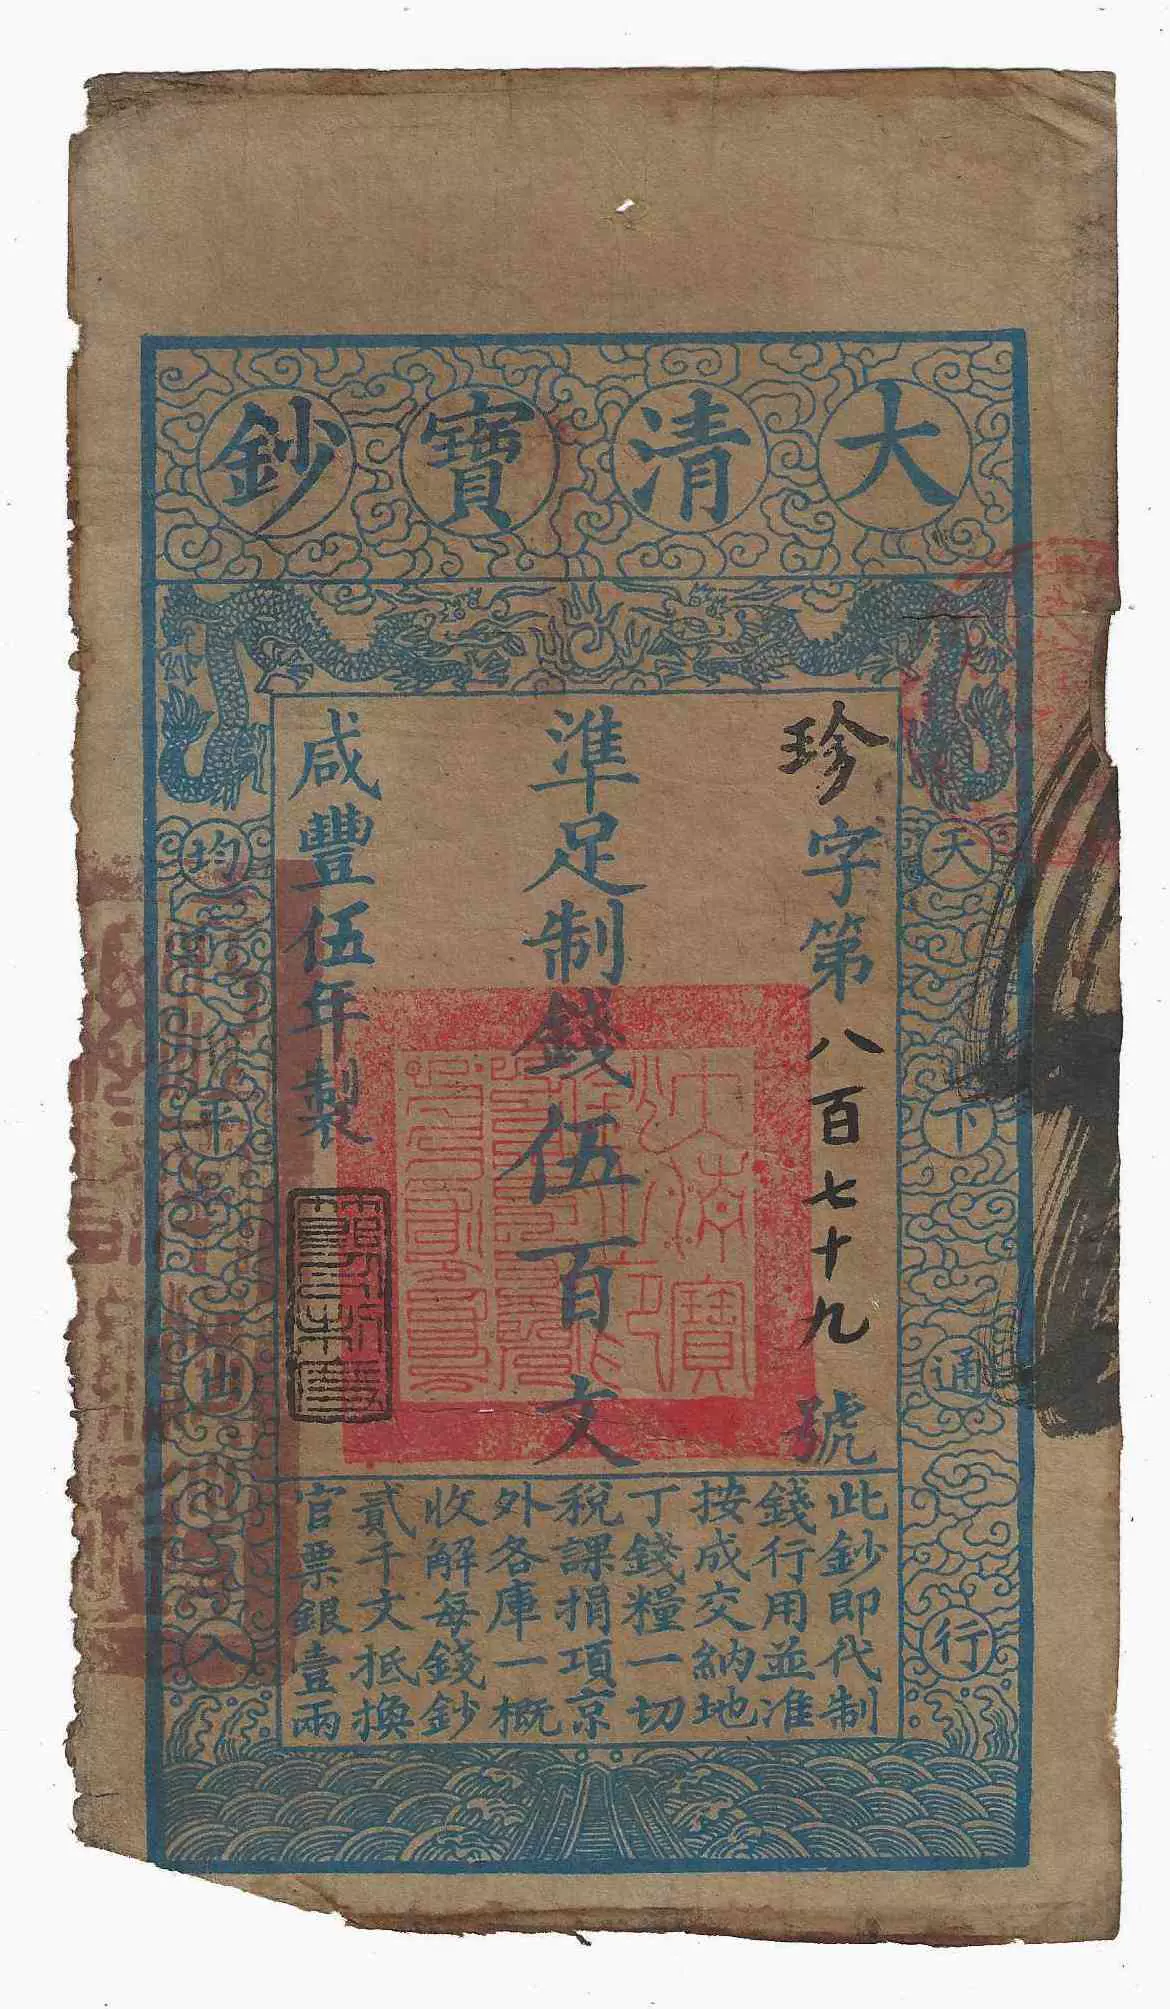 大清寶鈔
天下通行
均平出入
珍字第八百七十九號
準足制錢伍百文
咸豐伍年製
此鈔即代制
錢行用並准
按成交納地
丁錢糧一切
稅課捐項京
外各庫一概
收解每錢鈔
貳千文抵換
官票銀壹兩